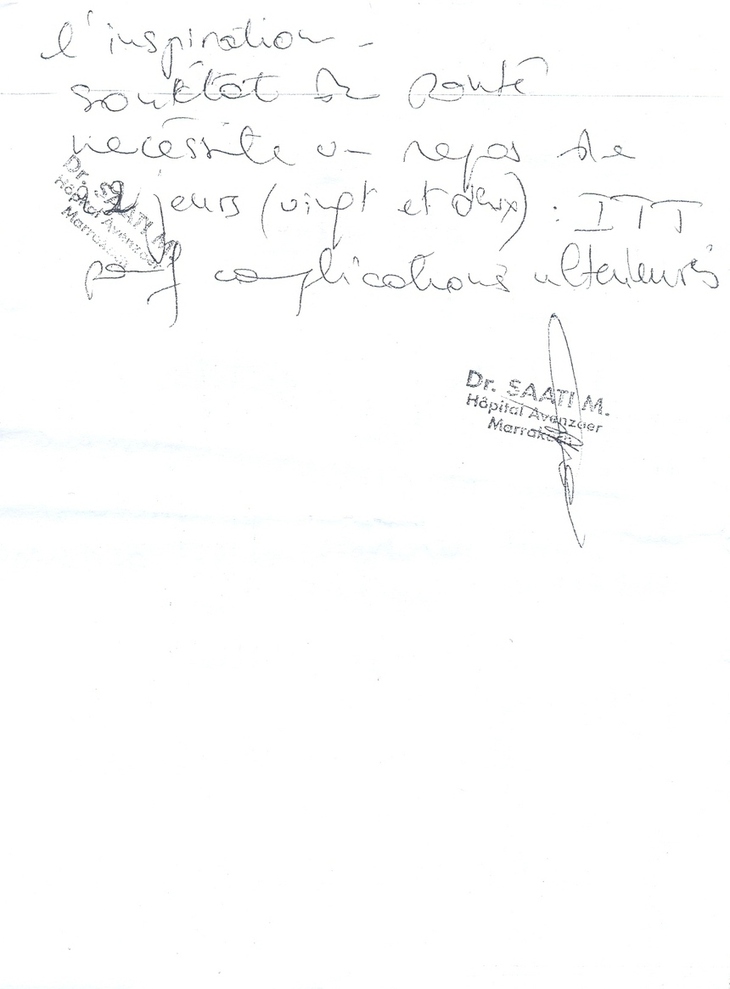 l'inspiration -
son état de santé
necéssite un repos de
22 jeurs (vingt et deux) : ITT
sauf complications ulterieures
Dr. SAATI M.
Hôpital Avenzoer
Marrakech
Dr. SAATI M.
Hôpital Avenzoer
Marrakech